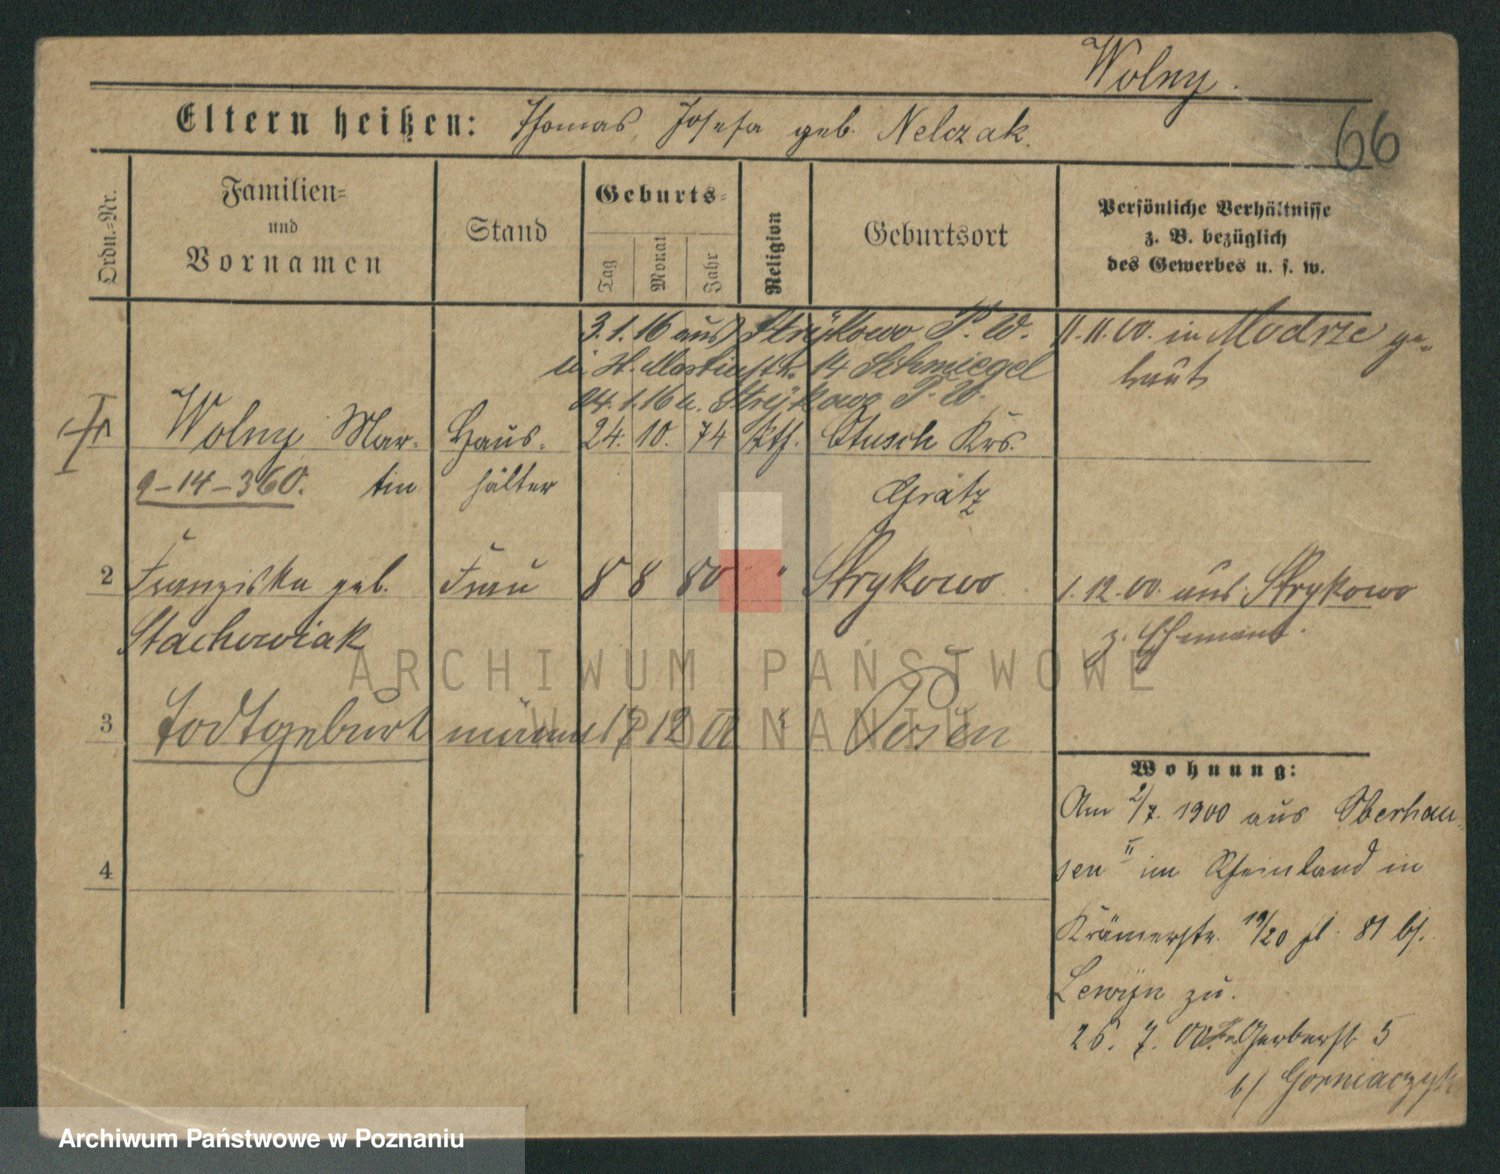 Wolny.
Eltern heißen: Thomas, Josefa geb. Nelczak.
66
Ordn.=Nr.
Familien=
und
Vornamen
Stand
Geburts=
Tag
Monat
Jahr
Religion
Geburtsort
Persönliche Verhältnisse
z. B. bezüglich
des Gewerbes u. s. w.
3.1.16 aus Strykowo P. W.
in St. Martinstr. 14 Schmiegel
24.1.16 a. Strykowo P. W.
11.11.00. in Modrze ge-
traut
Wolny Mar- Haus- 24. 10. 74 kth. Otusch Krs.
9-14-360. tin hälter Grätz
2 Franziska geb. Frau 8 8 80 " Strykowo 1.12.00. aus Strykowo
Stachowiak z. Ehemann.
3 Todtgeburt männl 17 12 01 " Posen
4
Wohnung:
Am 2/7. 1900 aus Oberhau-
sen II im Rheinland in
Krämerstr. 19/20 bf.
Lewyn zu.
26. 7. 00. Gerberst 5
b/ Gorniaczyk
ARCHIWUM PAŃSTWOWE
W POZNANIU
Archiwum Państwowe w Poznaniu